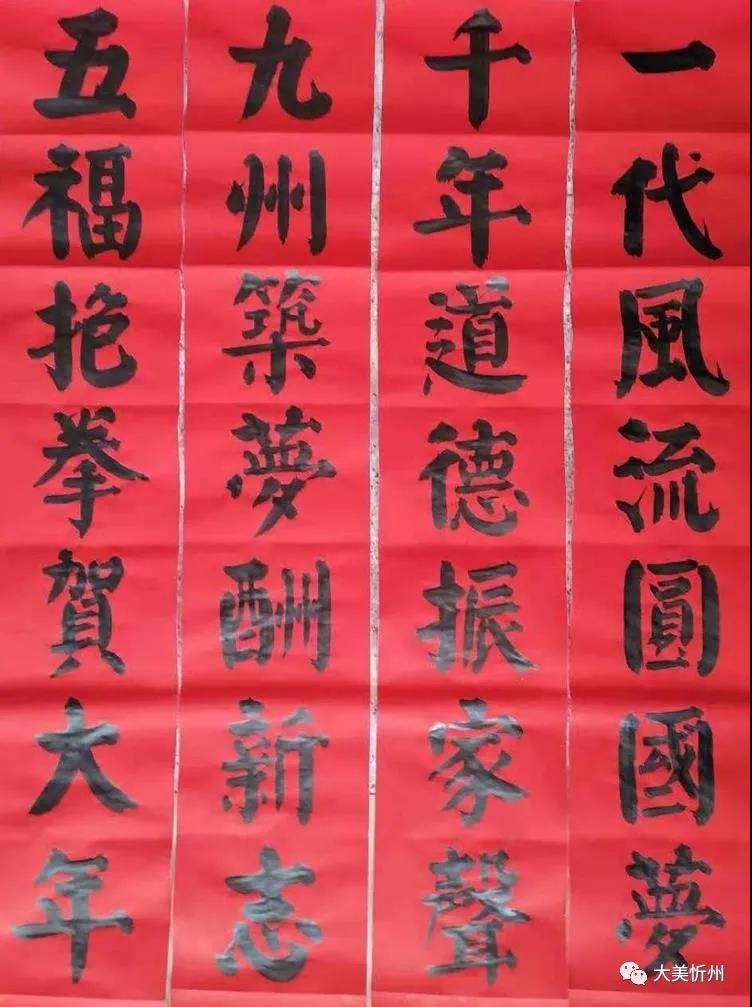 一代風流圓國夢
千年道德振家聲
九州築夢酬新志
五福抱拳賀大年
大美忻州